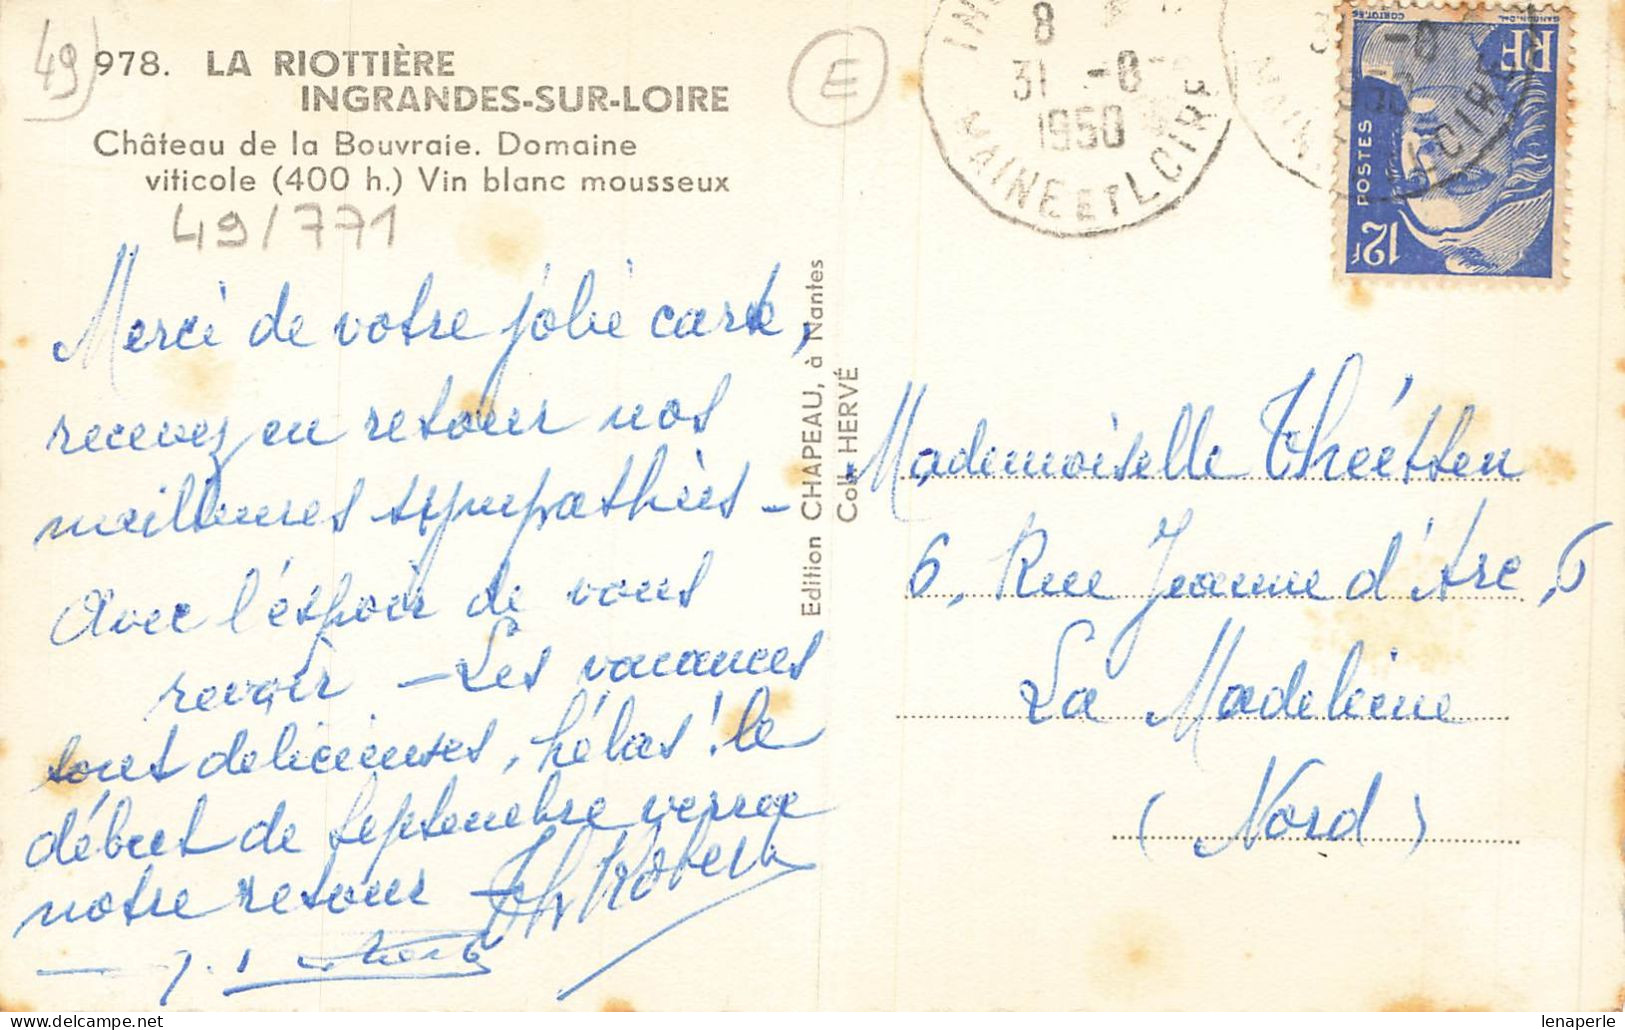 49
978. LA RIOTTIÈRE
INGRANDES-SUR-LOIRE
Château de la Bouvraie. Domaine
viticole (400 h.) Vin blanc mousseux
49/771
E
8
31 -8
1950
MAINE ET LOIRE
RF
POSTES
12F
Merci de votre jolie carte,
recevez en retour nos
meilleures sympathies -
Avec l'espoir de vous
revoir - Les vacances
sont delicieuses, hélas! le
début de Septembre verra
notre retour - Robert
Edition CHAPEAU, à Nantes
Coll. HERVÉ
Mademoiselle Théetten
6, Rue Jeanne d'Arc, 6
La Madeleine
(Nord)
lenaperle